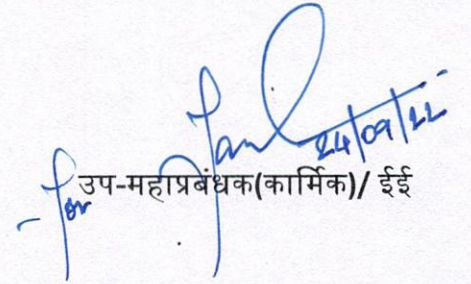 24/09/22
-for उप-महाप्रबंधक(कार्मिक)/ ईई